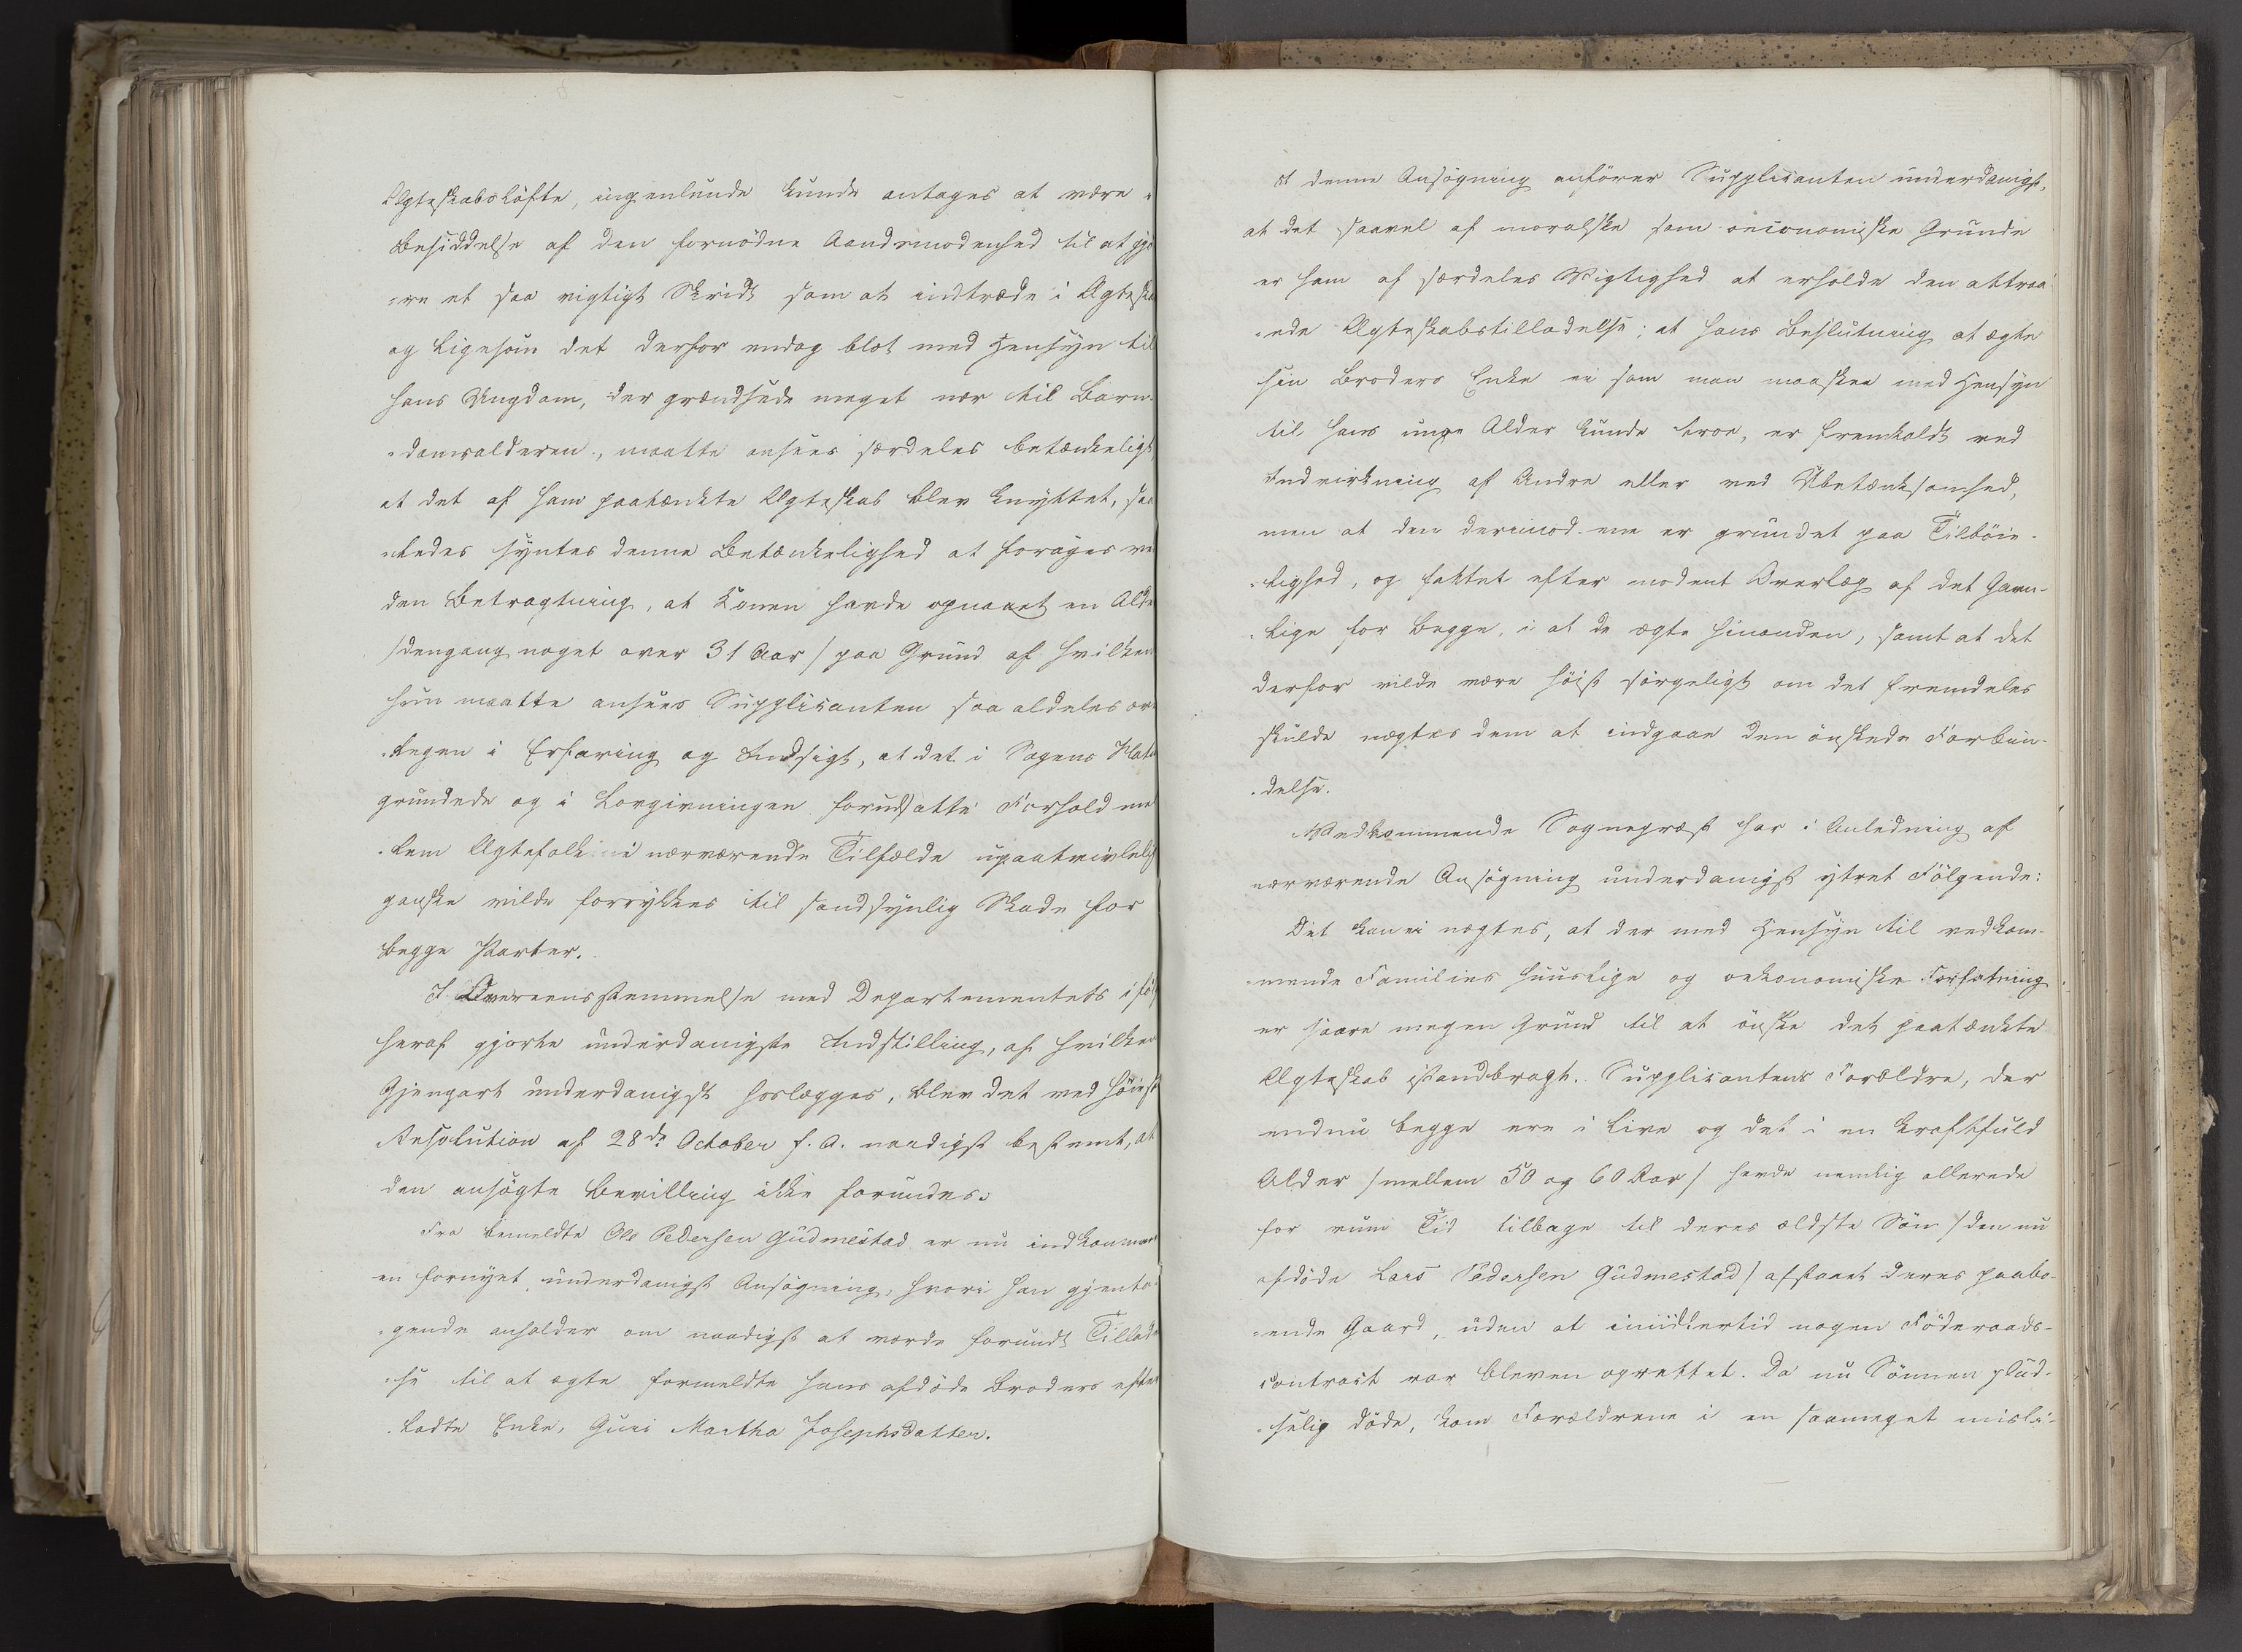 Ægteskabsløfte, ingenlunde kunde antages at være i
Besiddelse af den fornødne Aandsmodenhed til at gjø
-re et saa vigtigt Skridt som at indtræde i Ægteska
og ligesom det derfor endog blot med Hensyn til
hans Ungdom, der grændsede meget nær til Barn-
-domsalderen, maatte ansees særdeles betænkeligt,
at det af ham paatænkte Ægteskab blev knyttet, saa
-ledes syntes denne Betænkelighed at forøges ve
den Betragtning, at Konen havde opnaaet en Alde
/dengang noget over 31 Aar/ paa Grund af hvilken
hun maatte ansees Supplicanten saa aldeles over
-legen i Erfaring og Indsigt, at det i Sagens Natu
grundede og i Lovgivningen forudsatte Forhold mel
-lem Ægtefolk i nærværende Tilfælde upaatvivlelig
ganske vilde forrykkes til sandsynlig Skade for
begge Parter.
I Overeensstemmelse med Departementets iføl
heraf gjorte underdanigste Indstilling, af hvilken
Gjenpart underdanigst hoslægges, blev det ved Høieste
Resolution af 28de October f. A. naadigst bestemt, at
den ansøgte Bevilling ikke forundes.
Fra bemeldte Ole Pedersen Gudmestad er nu indkommet
en fornyet underdanigst Ansøgning, hvori han gjenta-
-gende anholder om naadigst at vorde forundt Tillade
-se til at ægte formeldte hans afdøde Broders efter
-ladte Enke, Guri Martha Josephsdatter.
I denne Ansøgning anfører Supplicanten underdanigst,
at det saavel af moralske som oeconomiske Grunde
er ham af særdeles Vigtighed at erholde den attraa
-ede Ægteskabstilladelse; at hans Beslutning at ægte
sin Broders Enke ei som man maaskee med Hensyn
til hans unge Alder kunde troe, er fremkaldt ved
Indvirkning af Andre eller ved Ubetænksomhed,
men at den derimod ene er grundet paa Tilbøie-
-lighed, og fattet efter modent Overlæg af det Gavn-
-lige for begge, i at de ægte hinanden, samt at det
derfor vilde være høist sørgeligt om det fremdeles
skulde nægtes dem at indgaae den ønskede Forbin-
-delse.
Vedkommende Sognepræst har i Anledning af
nærværende Ansøgning underdanigst ytret Følgende:
Det kan ei nægtes, at der med Hensyn til vedkom-
-mende Families huuslige og oekonomiske Forfatning
er saare megen Grund til at ønske det paatænkte
Ægteskab istandbragt. Supplicantens Forældre, der
endnu begge ere i Live og det i en kraftfuld
Alder /mellem 50 og 60 Aar/ havde nemlig allerede
for rum Tid tilbage til deres ældste Søn /den nu
afdøde Lars Pedersen Gudmestad/ afstaaet deres paabo-
-ende Gaard, uden at imidlertid nogen Føderaads-
contract var bleven oprettet. Da nu Sønnen plud-
-selig døde, kom Forældrene i en saameget misli-